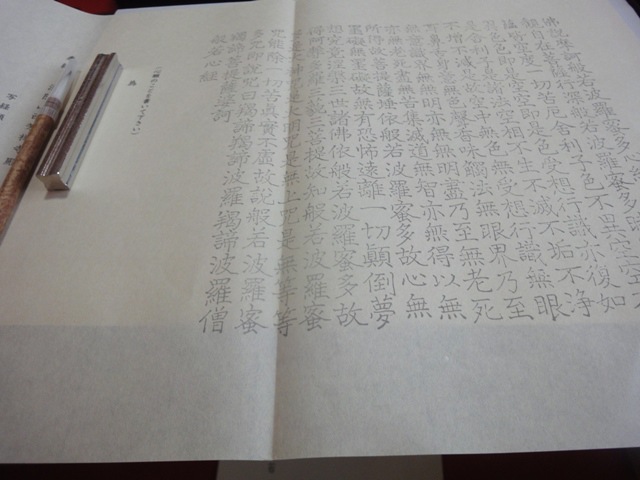 佛説摩訶般若波羅蜜多心経
觀自在菩薩行深般若波羅蜜多時
蘊皆空度一切苦厄舎利子色不異空空
異色色即是空空即是色受想行識亦復如
是舎利子是諸法空相不生不滅不垢不浄
不増不減是故空中無色無受想行識無眼
耳鼻舌身意無色聲香味觸法無眼界乃至
無意識界無無明亦無無明盡乃至無老死
亦無老死盡無苦集滅道無智亦無得以無
所得故菩提薩埵依般若波羅蜜多故心無
罣礙無罣礙故無有恐怖遠離一切顛倒夢
想究竟涅槃三世諸佛依般若波羅蜜多故
得阿耨多羅三藐三菩提故知般若波羅蜜
多是大神咒是大明咒是無上咒是無等等
咒能除一切苦真實不虚故説般若波羅蜜
多咒即説咒曰羯諦羯諦波羅羯諦波羅僧
羯諦菩提薩婆訶
般若心経
為